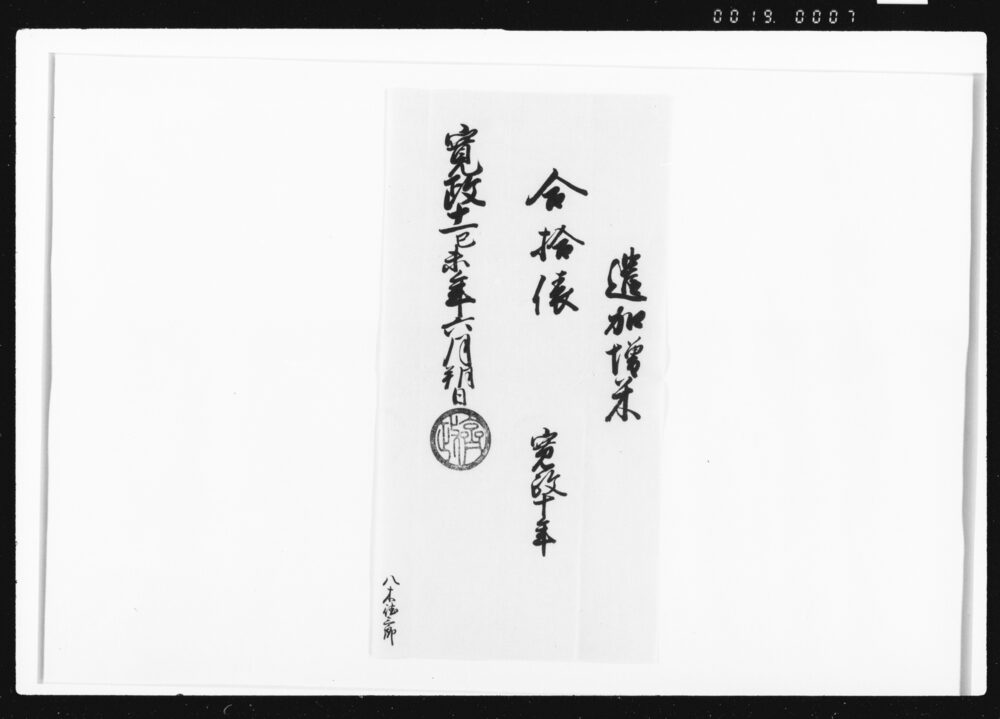 0019. 0007
遣加増米
合拾俵
寛政十年
寛政十一己未年六月朔日
八木